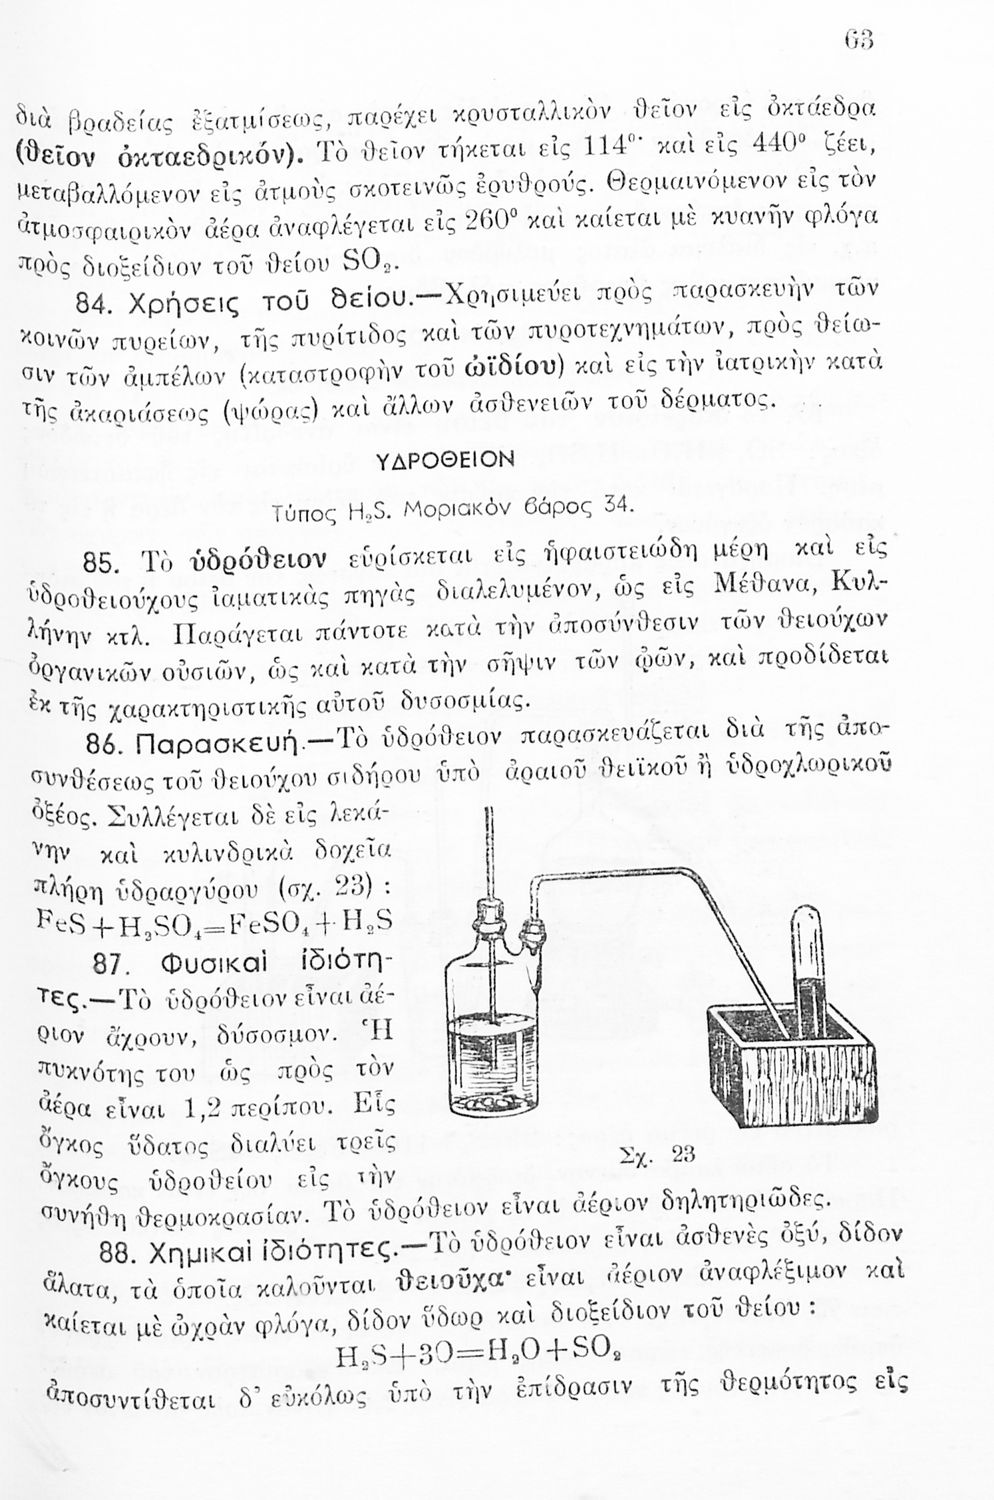 63
διὰ βραδείας ἐξατμίσεως, παρέχει κρυσταλλικὸν θεῖον εἰς ὀκτάεδρα
(θεῖον ὀκταεδρικόν). Τὸ θεῖον τήκεται εἰς 114°· καὶ εἰς 440° ζέει,
μεταβαλλόμενον εἰς ἀτμοὺς σκοτεινῶς ἐρυθρούς. Θερμαινόμενον εἰς τὸν
ἀτμοσφαιρικὸν ἀέρα ἀναφλέγεται εἰς 260° καὶ καίεται μὲ κυανῆν φλόγα
πρὸς διοξείδιον τοῦ θείου SO₂.
84. Χρήσεις τοῦ θείου.—Χρησιμεύει πρὸς παρασκευὴν τῶν
κοινῶν πυρείων, τῆς πυρίτιδος καὶ τῶν πυροτεχνημάτων, πρὸς θείω-
σιν τῶν ἀμπέλων (καταστροφὴν τοῦ ὠϊδίου) καὶ εἰς τὴν ἰατρικὴν κατὰ
τῆς ἀκαριάσεως (ψώρας) καὶ ἄλλων ἀσθενειῶν τοῦ δέρματος.
ΥΔΡΟΘΕΙΟΝ
Τύπος H₂S. Μοριακὸν βάρος 34.
85. Τὸ ὑδρόθειον εὑρίσκεται εἰς ἡφαιστειώδη μέρη καὶ εἰς
ὑδροθειούχους ἰαματικὰς πηγὰς διαλελυμένον, ὡς εἰς Μέθανα, Κυλ-
λήνην κτλ. Παράγεται πάντοτε κατὰ τὴν ἀποσύνθεσιν τῶν θειούχων
ὀργανικῶν οὐσιῶν, ὡς καὶ κατὰ τὴν σῆψιν τῶν ᾠῶν, καὶ προδίδεται
ἐκ τῆς χαρακτηριστικῆς αὐτοῦ δυσοσμίας.
86. Παρασκευή.—Τὸ ὑδρόθειον παρασκευάζεται διὰ τῆς ἀπο-
συνθέσεως τοῦ θειούχου σιδήρου ὑπὸ ἀραιοῦ θειϊκοῦ ἢ ὑδροχλωρικοῦ
ὀξέος. Συλλέγεται δὲ εἰς λεκά-
νην καὶ κυλινδρικὰ δοχεῖα
πλήρη ὑδραργύρου (σχ. 23) :
FeS+H₂SO₄=FeSO₄+H₂S
87. Φυσικαὶ ἰδιότη-
τες.—Τὸ ὑδρόθειον εἶναι ἀέ-
ριον ἄχρουν, δύσοσμον. Ἡ
πυκνότης του ὡς πρὸς τὸν
ἀέρα εἶναι 1,2 περίπου. Εἷς
ὄγκος ὕδατος διαλύει τρεῖς
ὄγκους ὑδροθείου εἰς τὴν
συνήθη θερμοκρασίαν. Τὸ ὑδρόθειον εἶναι ἀέριον δηλητηριῶδες.
Σχ. 23
88. Χημικαὶ ἰδιότητες.—Τὸ ὑδρόθειον εἶναι ἀσθενὲς ὀξύ, δίδον
ἅλατα, τὰ ὁποῖα καλοῦνται θειοῦχα· εἶναι ἀέριον ἀναφλέξιμον καὶ
καίεται μὲ ὠχρὰν φλόγα, δίδον ὕδωρ καὶ διοξείδιον τοῦ θείου :
H₂S+3O=H₂O+SO₂
ἀποσυντίθεται δ’ εὐκόλως ὑπὸ τὴν ἐπίδρασιν τῆς θερμότητος εἰς